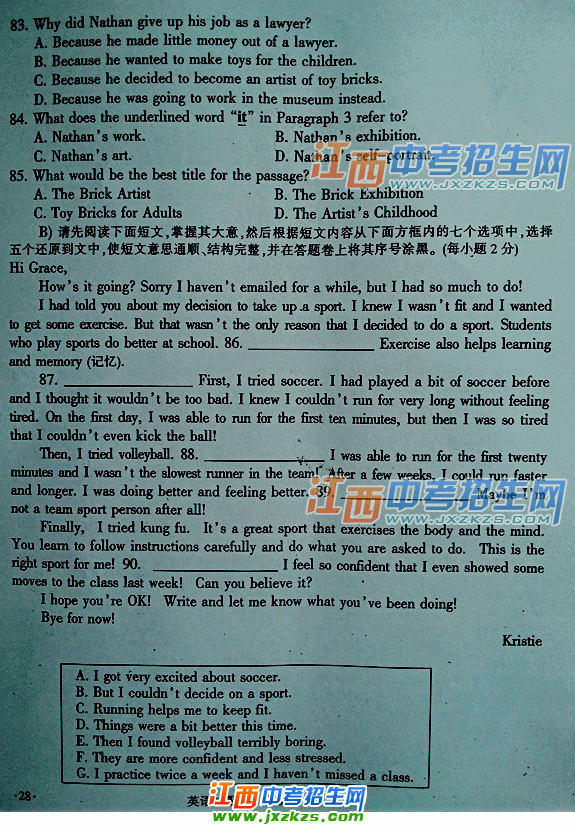 83. Why did Nathan give up his job as a lawyer?
A. Because he made little money out of a lawyer.
B. Because he wanted to make toys for the children.
C. Because he decided to become an artist of toy bricks.
D. Because he was going to work in the museum instead.
84. What does the underlined word "it" in Paragraph 3 refer to?
A. Nathan's work. B. Nathan's exhibition.
C. Nathan's art. D. Nathan's self-portrait.
江西中考招生网
www.jxzkzs.com
85. What would be the best title for the passage?
A. The Brick Artist B. The Brick Exhibition
C. Toy Bricks for Adults D. The Artist's Childhood
B) 请先阅读下面短文,掌握其大意,然后根据短文内容从下面方框内的七个选项中,选择
五个还原到文中,使短文意思通顺、结构完整,并在答题卷上将其序号涂黑。(每小题2分)
Hi Grace,
How's it going? Sorry I haven't emailed for a while, but I had so much to do!
I had told you about my decision to take up a sport. I knew I wasn't fit and I wanted
to get some exercise. But that wasn't the only reason that I decided to do a sport. Students
who play sports do better at school. 86. ____________ Exercise also helps learning
and memory (记忆).
87. ____________ First, I tried soccer. I had played a bit of soccer before
and I thought it wouldn't be too bad. I knew I couldn't run for very long without feeling
tired. On the first day, I was able to run for the first ten minutes, but then I was so tired
that I couldn't even kick the ball!
Then, I tried volleyball. 88. ____________ I was able to run for the first twenty
minutes and I wasn't the slowest runner in the team! After a few weeks, I could run faster
and longer. I was doing better and feeling better. 89. ____________ Maybe I'm
not a team sport person after all!
江西中考招生网
www.jxzkzs.com
Finally, I tried kung fu. It's a great sport that exercises the body and the mind.
You learn to follow instructions carefully and do what you are asked to do. This is the
right sport for me! 90. ____________ I feel so confident that I even showed some
moves to the class last week! Can you believe it?
I hope you're OK! Write and let me know what you've been doing!
Bye for now!
Kristie
A. I got very excited about soccer.
B. But I couldn't decide on a sport.
C. Running helps me to keep fit.
D. Things were a bit better this time.
E. Then I found volleyball terribly boring.
F. They are more confident and less stressed.
G. I practice twice a week and I haven't missed a class.
·28·
英语
江西中考招生网
www.jxzkzs.com